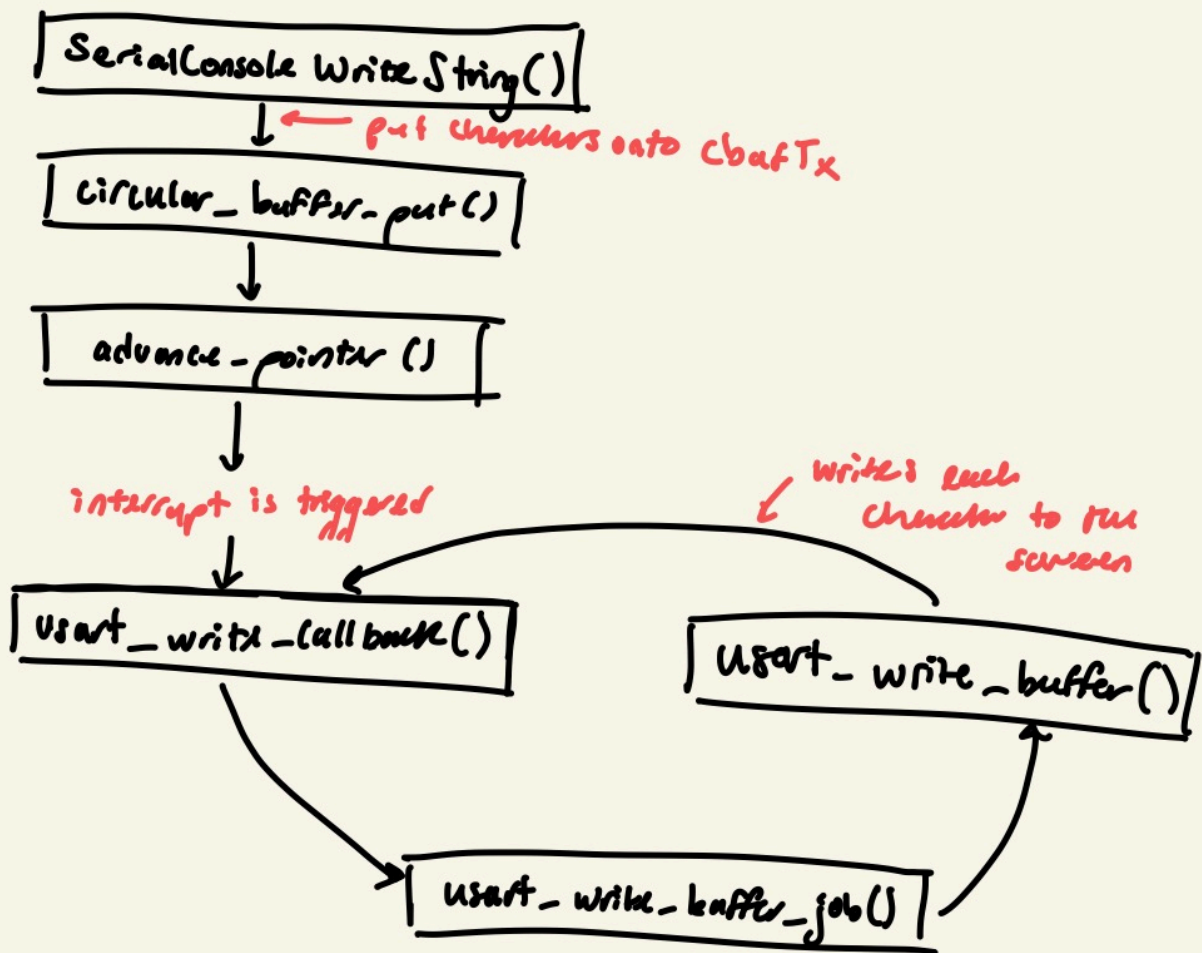 SerialConsole Write String()
put characters onto cbufTx
circular_buffer_put()
advance_pointer ()
interrupt is triggered
writes each
character to the
screen
usart_write_callback()
usart_write_buffer()
usart_write_buffer_job()